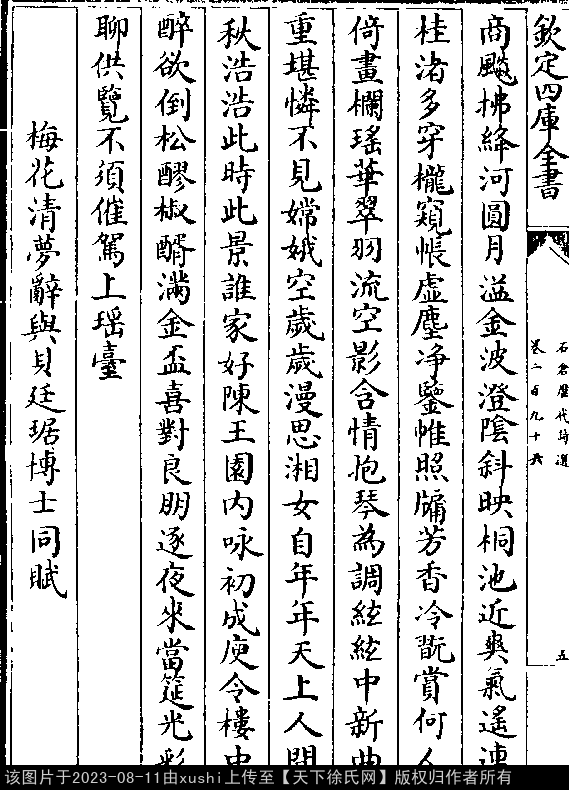 欽定四庫全書
石倉歷代詩選
卷二百九十六
五
商飇拂絳河圓月溢金波澄陰斜映桐池近爽氣遙連
桂渚多穿櫳窺帳虛塵净鑒帷照牖芳香冷翫賞何人
倚畫欄瑤華翠羽流空影含情抱琴為調絃絃中新曲
重堪憐不見嫦娥空歲歲漫思湘女自年年天上人間
秋浩浩此時此景誰家好陳王園内咏初成庾令樓中
醉欲倒松醪椒醑滿金盃喜對良朋逐夜來當筵光彩
聊供覽不須催駕上瑶臺
梅花清夢辭與貝廷琚博士同賦
该图片于2023-08-11由xushi上传至【天下徐氏网】版权归作者所有